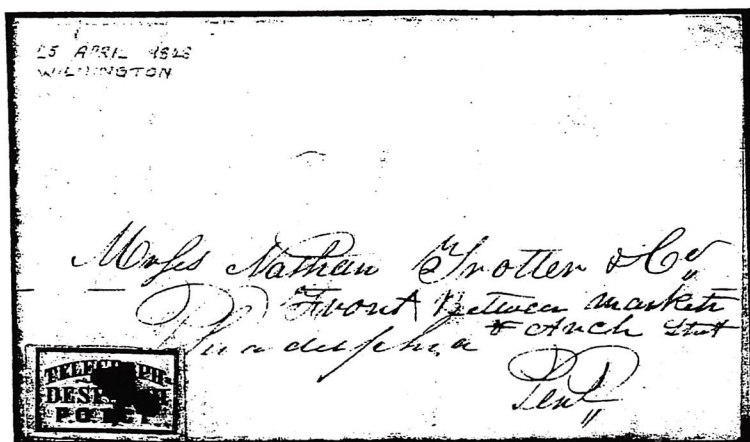 25 APRIL 1848
WILMINGTON
Messs Nathan Trotter & Co
Front Between Market
& Arch Street
Philadelphia
Penn
TELEGRAPH
DESPATCH
P.O. No 1